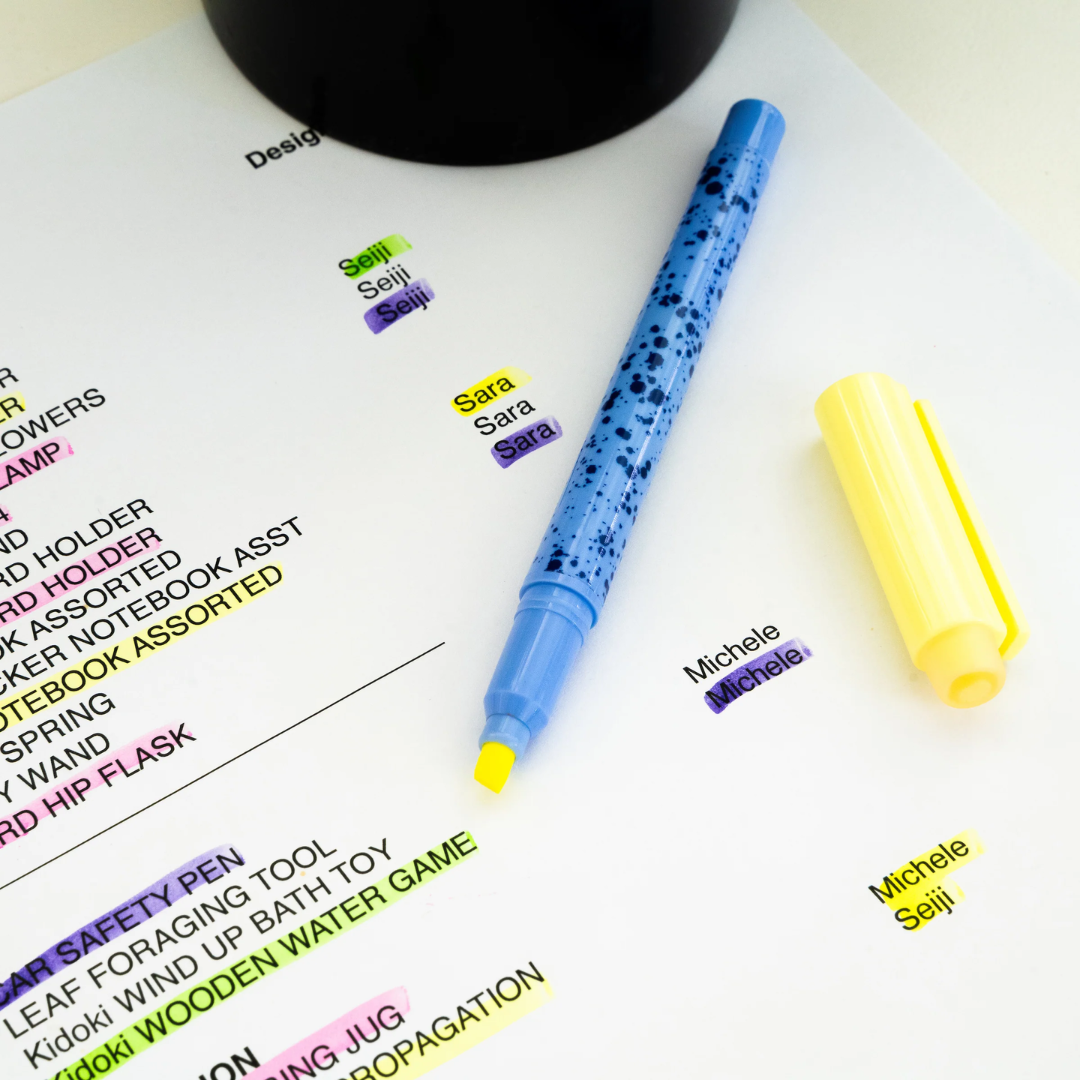 Desig
Seiji
Seiji
Seiji
Sara
Sara
Sara
LOWERS
LAMP
4
ND
RD HOLDER
RD HOLDER
OK ASSORTED
CKER NOTEBOOK ASST
OTEBOOK ASSORTED
SPRING
Y WAND
RD HIP FLASK
Michele
Michele
CAR SAFETY PEN
LEAF FORAGING TOOL
Kidoki WIND UP BATH TOY
Kidoki WOODEN WATER GAME
Michele
Seiji
ION
RING JUG
PROPAGATION